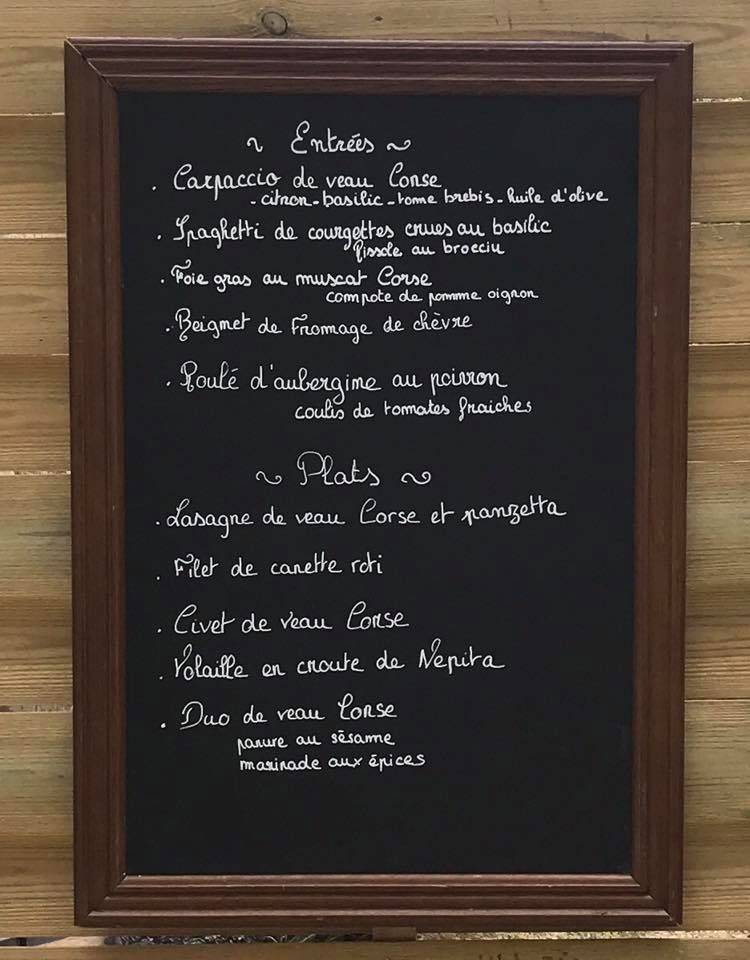 ~ Entrées ~
. Carpaccio de veau Corse
- citron - basilic - tome brebis - huile d'olive
. Spaghetti de courgettes crues au basilic
fissole au brocciu
. Foie gras au muscat Corse
compote de pomme oignon
. Beignet de Fromage de chèvre
. Roulé d'aubergine au poivron
coulis de tomates fraiches
~ Plats ~
. Lasagne de veau Corse et panzetta
. Filet de canette roti
. Civet de veau Corse
. Volaille en croute de Nepita
. Duo de veau Corse
panure au sésame
marinade aux épices